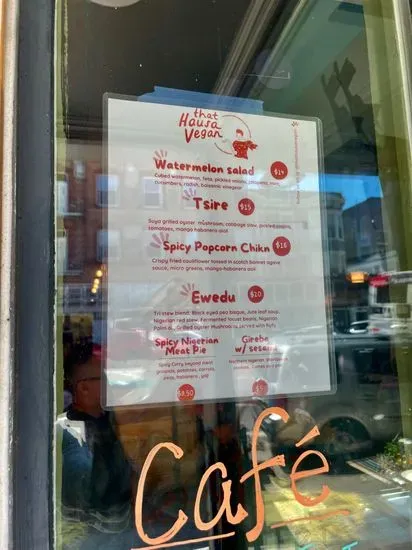 that
Hausa
Vegan
Watermelon salad $14
Cubed watermelon, feta, pickled onions, jalapeno, mint,
cucumbers, radish, balsamic vinegar
Tsire $15
Suya grilled oyster mushroom, cabbage slaw, pickled onions,
tomatoes, mango habanero aioli
Spicy Popcorn Chikn $16
Crispy fried cauliflower tossed in scotch bonnet agave
sauce, micro greens, mango habanero aioli
Ewedu $20
Tri stew blend: Black eyed pea bisque, Jute leaf soup,
Nigerian red stew, Fermented locust beans, Nigerian
Palm oil, Grilled oyster Mushrooms served with
Spicy Nigerian
Meat Pie
Spicy Curry beyond meat
grounds, potatoes, carrots,
peas, habanero
$8.50
Gireba
w/ sesame
Northern Nigerian
cookies
Café